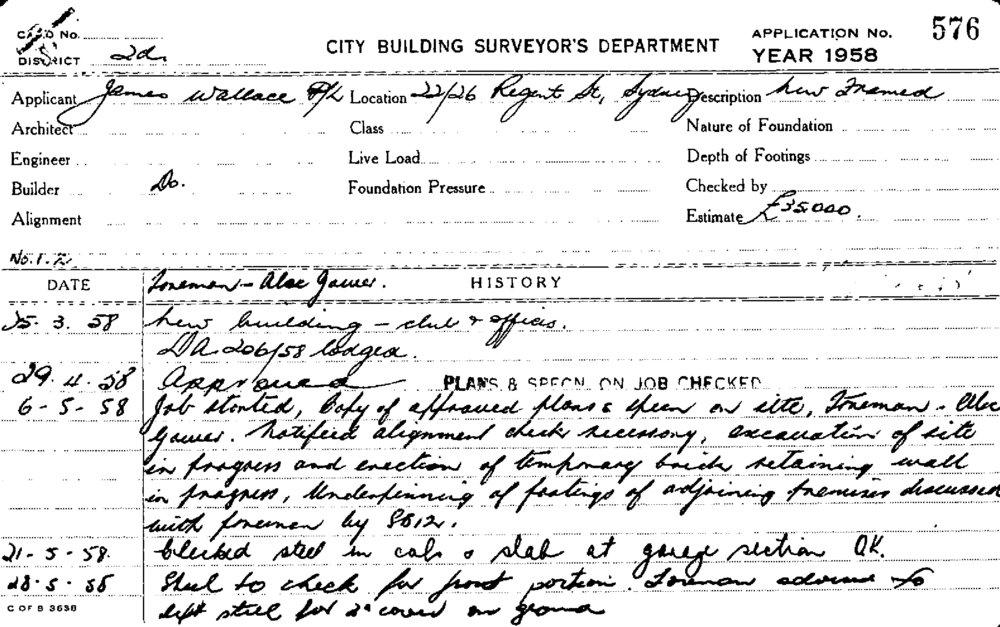 CARD No.
DISTRICT 2d.
CITY BUILDING SURVEYOR'S DEPARTMENT
APPLICATION No. 576
YEAR 1958
Applicant James Wallace P/L Location 22/26 Regent St, Sydney Description New Framed
Architect Class Nature of Foundation
Engineer Live Load Depth of Footings
Builder Do. Foundation Pressure Checked by
Alignment Estimate £35000.
No. 1. 2
DATE Foreman - Alec Gower. HISTORY
25. 3. 58 New building - club & offices.
DA 206/58 lodged.
29. 4. 58 Approved PLANS & SPECN. ON JOB CHECKED
6-5-58 Job started, Copy of approved plans & specn on site, Foreman - Alec
Gower. Notified alignment check necessary, excavation of site
in progress and erection of temporary brick retaining wall
in progress, Underpinning of footings of adjoining premises discussed
with foreman by
21-5-58. Checked steel in cols & slab at garage section OK.
28.5.58 Steel to check for front portion. Foreman advised to
steel for 2" cover on ground
C OF S 3638